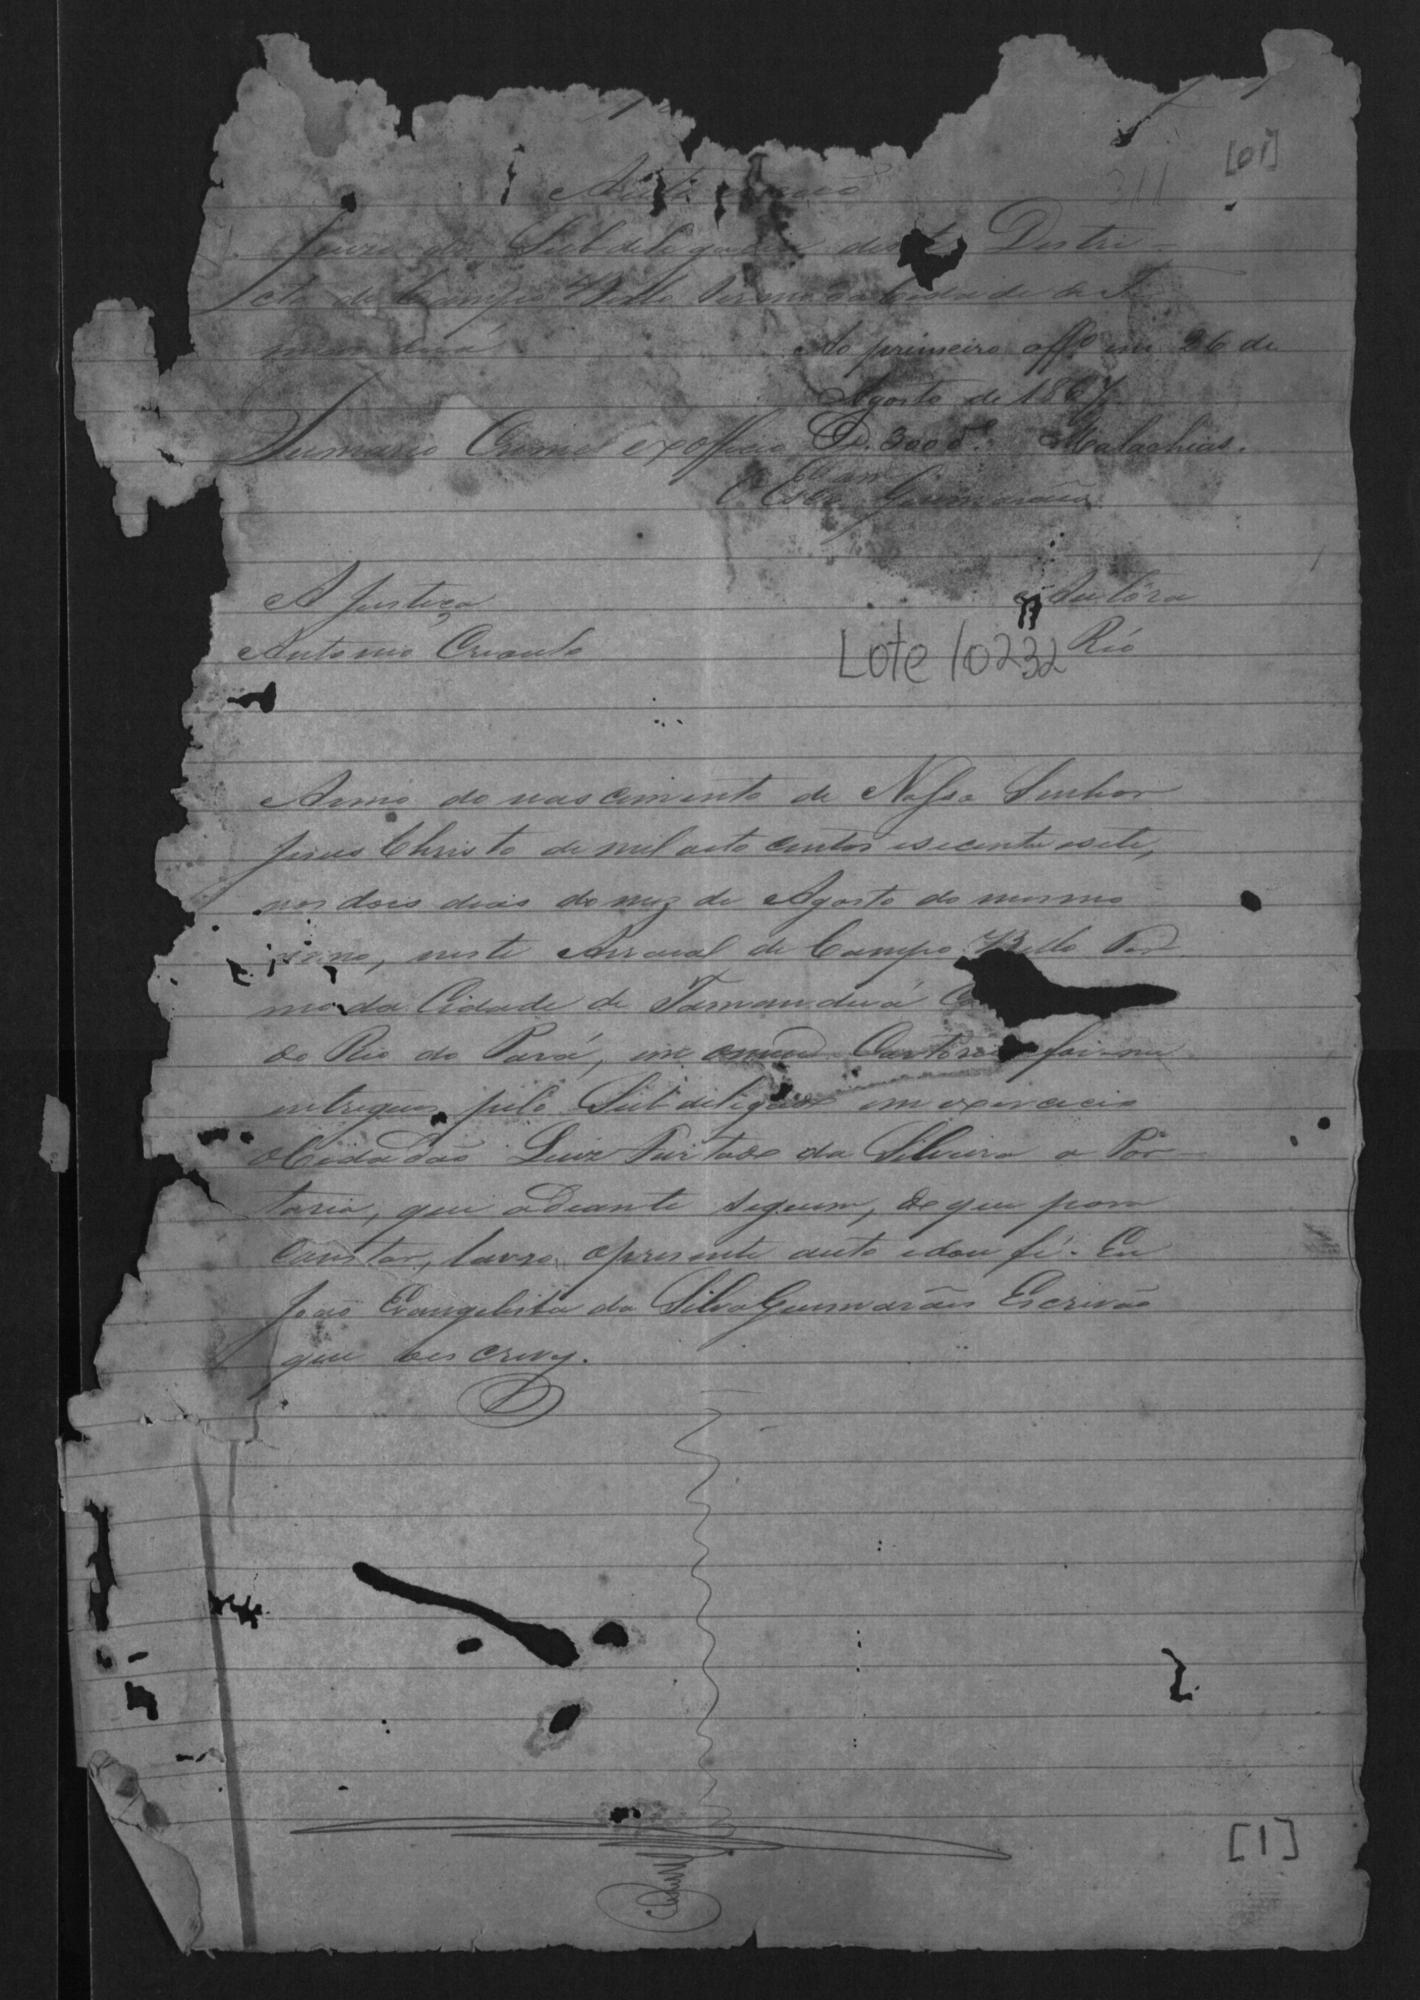 [01]
311
Juizo da Subdelegacia deste Destri-
cto de Campo Bello Termo da Cidade de Ta
manduá
Ao primeiro offº em 26 de
Agosto de 1867
Summario Crime exofficio D. 3000 Malachias.
Guimarães
A Justiça Autôra
Antonio Crioulo Réo
Lote 10232
Anno do nascimento de Nosso Senhor
Jesus Christo de mil oito centos esecenta esete,
aos dois dias do mez de Agosto do mesmo
anno, neste Arraial de Campo Bello Ter
mo da Cidade de Tamanduá
do Rio do Pará, em Cartorio foi-me
entregue pelo Subdelegado em exercicio
oCidadão Luiz Furtado da Silveira a Por-
taria, que adiante seguem, do que para
constar, lavro opresente auto edou fé. Eu
João Evangelista da Silva Guimarães Escrivão
que oescrevy.
[1]